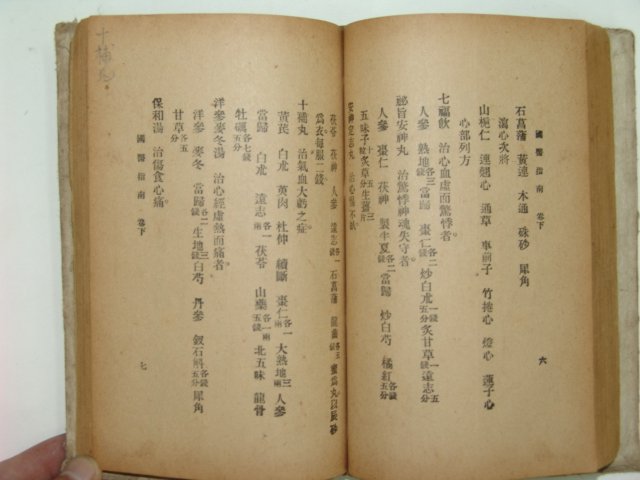 國醫指南 卷下
石菖蒲 黃連 木通 硃砂 犀角
瀉心次將
山梔仁 連翹心 通草 車前子 竹捲心 燈心 蓮子心
心部列方
七福飲 治心血虛而驚悸者。
人參 熟地各三錢 當歸 棗仁各二錢 炒白朮一錢五分 炙甘草一錢 遠志五分
祕旨安神丸 治驚悸神魂失守者。
人參 棗仁 茯神 製半夏各二錢 當歸 炒白芍 橘紅各錢五分
五味子十粒 炙草五分 生薑三片
安神定志丸 治心
茯苓 茯神 人參 遠志各一錢 石菖蒲 龍齒各五錢 蜜爲丸以辰砂
爲衣每服二錢
十補丸 治氣血大虧之症。
黃芪 白朮 萸肉 杜仲 續斷 棗仁各二兩 大熟地三兩 人參
當歸 白朮 遠志各一兩 茯苓 山藥各一兩五錢 北五味 龍骨
牡蠣各七錢
洋參麥冬湯 治心經虛熱而痛者。
洋參 麥冬 當歸各二錢 生地三錢 白芍 丹參 釵石斛各錢五分 犀角
甘草五分
保和湯 治傷食心痛。
國醫指南 卷下
七
六
十補丸